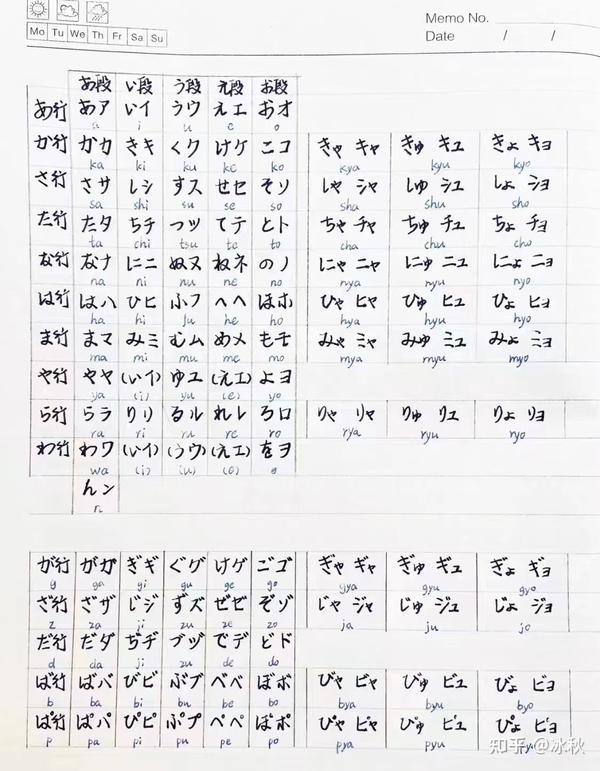 Memo No.
Mo Tu We Th Fr Sa Su
Date / /
あ段 い段 う段 え段 お段
あ行 あア いイ うウ えエ おオ
a i u e o
か行 かカ きキ くク けケ こコ きゃ キャ きゅ キュ きょ キョ
ka ki ku ke ko kya kyu kyo
さ行 さサ しシ すス せセ そソ しゃ シャ しゅ シュ しょ ショ
sa shi su se so sha shu sho
た行 たタ ちチ つツ てテ とト ちゃ チャ ちゅ チュ ちょ チョ
ta chi tsu te to cha chu cho
な行 なナ にニ ぬヌ ねネ のノ にゃ ニャ にゅ ニュ にょ ニョ
na ni nu ne no nya nyu nyo
は行 はハ ひヒ ふフ へヘ ほホ ひゃ ヒャ ひゅ ヒュ ひょ ヒョ
ha hi fu he ho hya hyu hyo
ま行 まマ みミ むム めメ もモ みゃ ミャ みゅ ミュ みょ ミョ
ma mi mu me mo mya myu myo
や行 やヤ (いイ) ゆユ (えエ) よヨ
ya (i) yu (e) yo
ら行 らラ りリ るル れレ ろロ りゃ リャ りゅ リュ りょ リョ
ra ri ru re ro rya ryu ryo
わ行 わワ (いイ) (うウ) (えエ) をヲ
wa (i) (u) (e) o
んン
n
が行 がガ ぎギ ぐグ げゲ ごゴ ぎゃ ギャ ぎゅ ギュ ぎょ ギョ
g ga gi gu ge go gya gyu gyo
ざ行 ざザ じジ ずズ ぜゼ ぞゾ じゃ ジャ じゅ ジュ じょ ジョ
z za ji zu ze zo ja ju jo
だ行 だダ ぢヂ づヅ でデ どド
d da ji zu de do
ば行 ばバ びビ ぶブ べベ ぼボ びゃ ビャ びゅ ビュ びょ ビョ
b ba bi bu be bo bya byu byo
ぱ行 ぱパ ぴピ ぷプ ぺペ ぽポ ぴゃ ピャ ぴゅ ピュ ぴょ ピョ
p pa pi pu pe po pya pyu
知乎 @冰秋